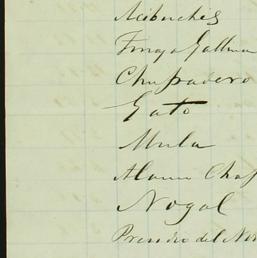 Acibuches
Chupadero
Gato
Mula
Alamo Chap
Nogal
Presidio del Nor